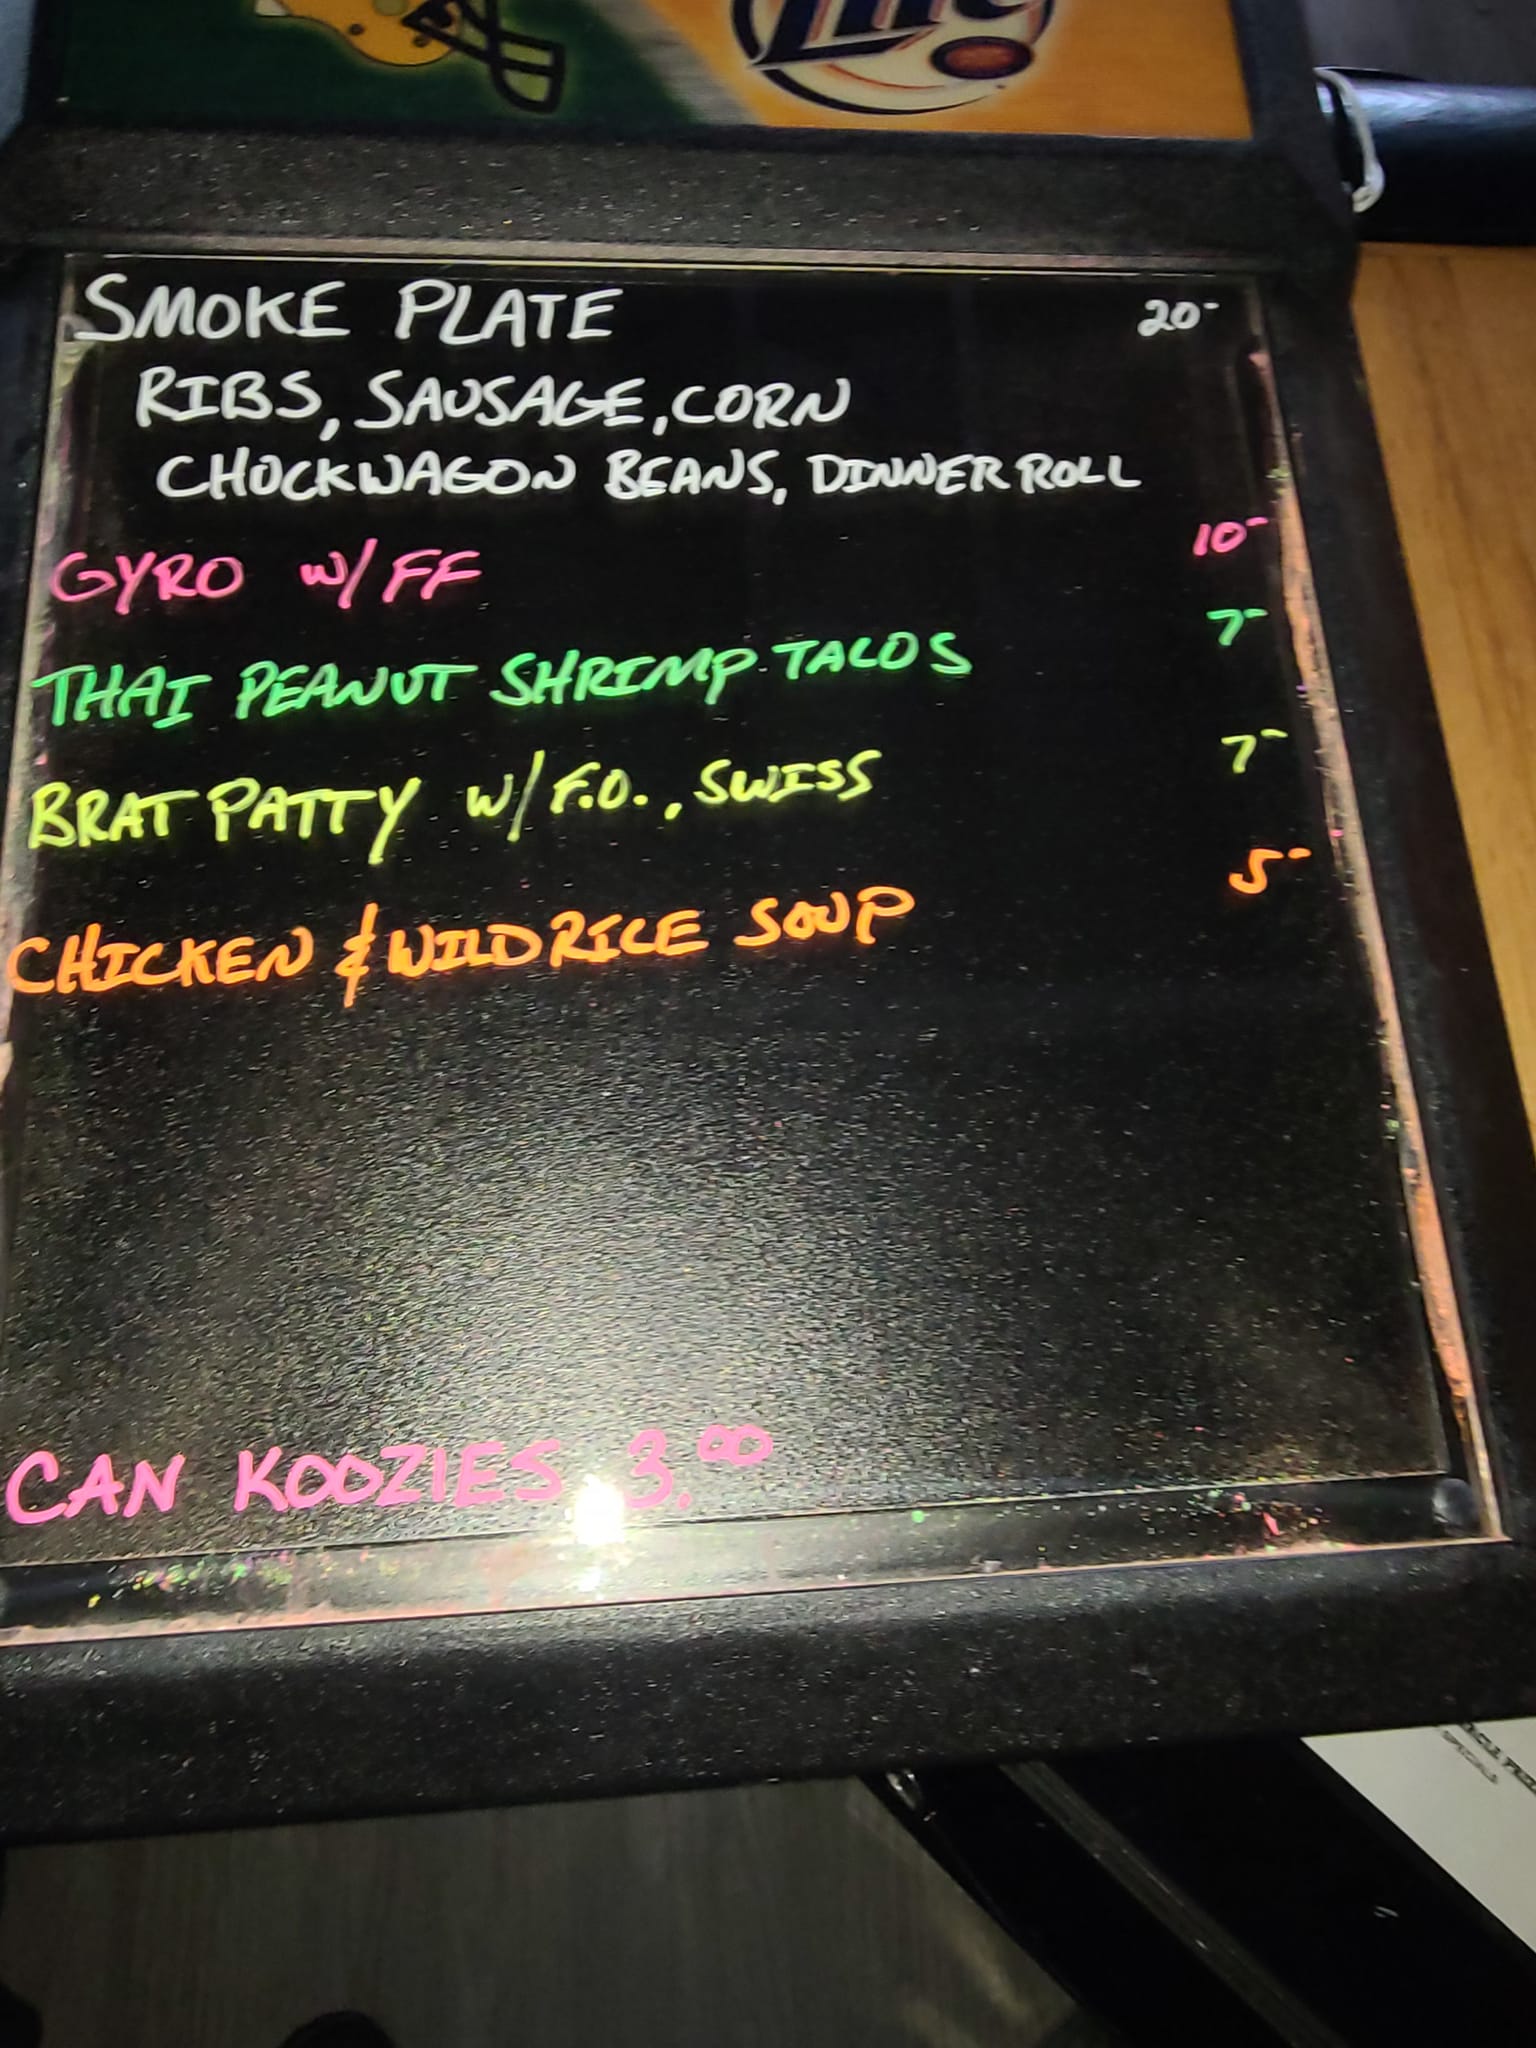 Lite
SMOKE PLATE 20-
RIBS, SAUSAGE, CORN
CHUCKWAGON BEANS, DINNER ROLL
GYRO W/FF 10-
THAI PEANUT SHRIMP TACOS 7-
BRAT PATTY W/F.O., SWISS 7-
CHICKEN & WILD RICE SOUP 5-
CAN KOOZIES 3.00